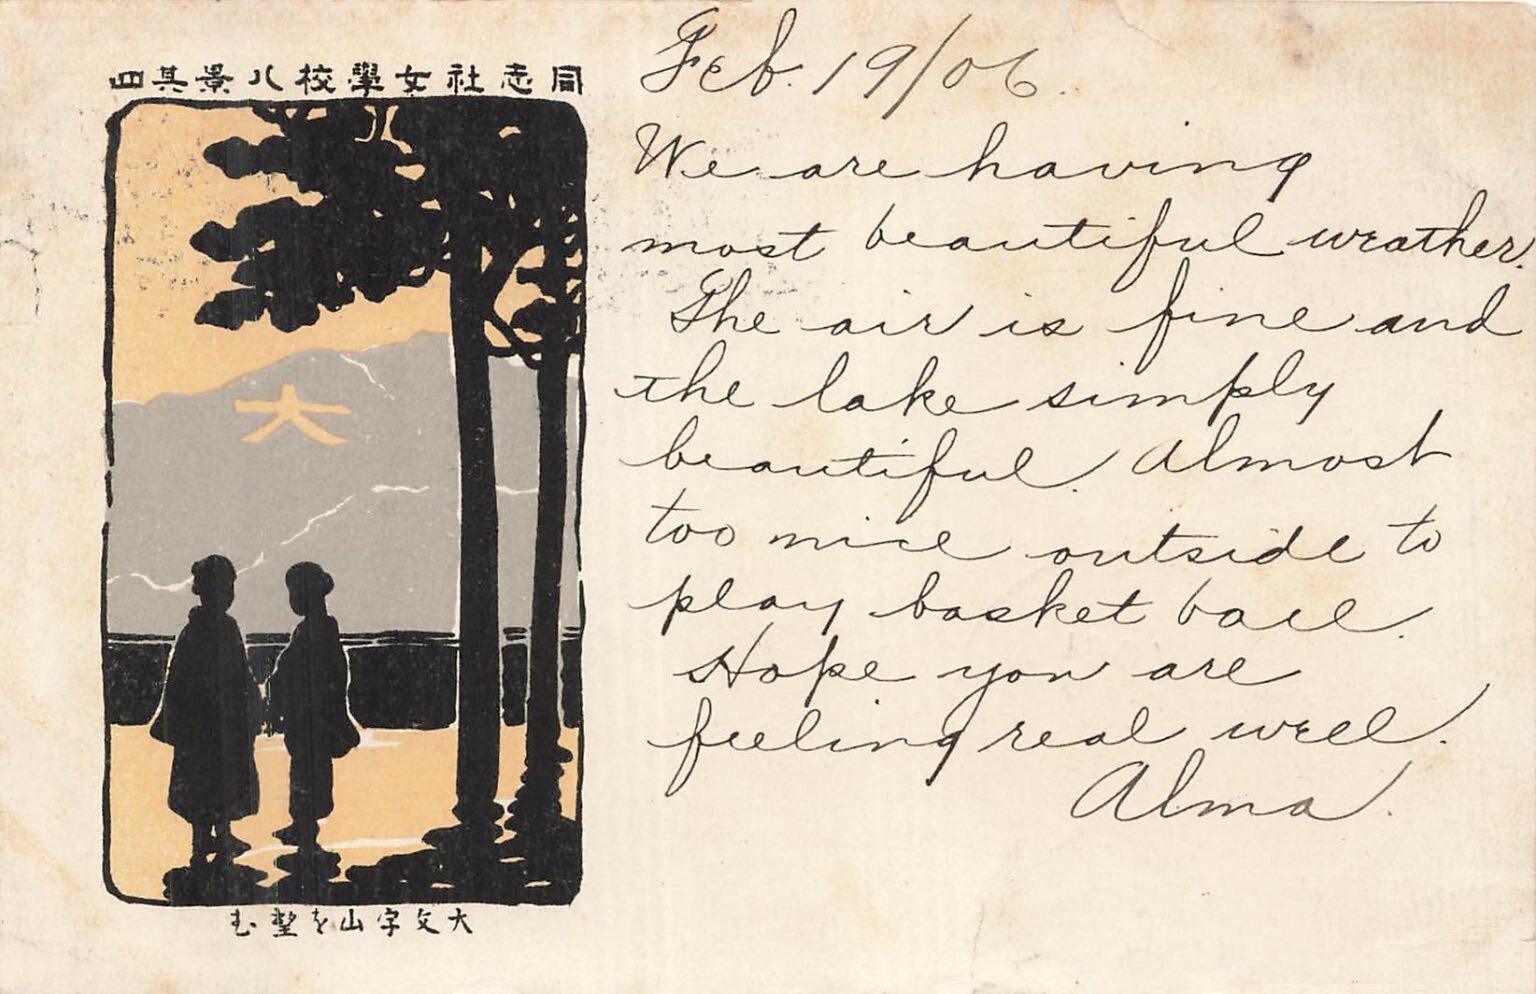 同志社女學校八景其四
大
大文字山を望む
Feb. 19/06.
We are having
most beautiful weather.
The air is fine and
the lake simply
beautiful. Almost
too nice outside to
play basket ball.
Hope you are
feeling real well.
Alma.